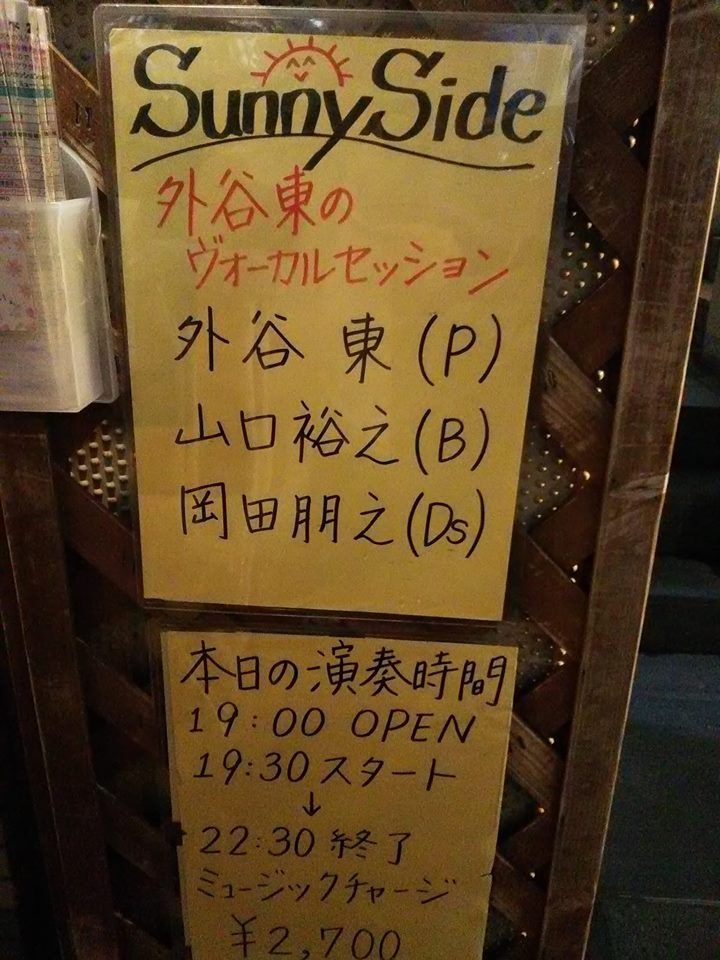 Sunny Side
外谷東の
ヴォーカルセッション
外谷 東(P)
山口裕之(B)
岡田朋之(Ds)
本日の演奏時間
19:00 OPEN
19:30スタート
↓
22:30 終了
ミュージックチャージ
¥2,700